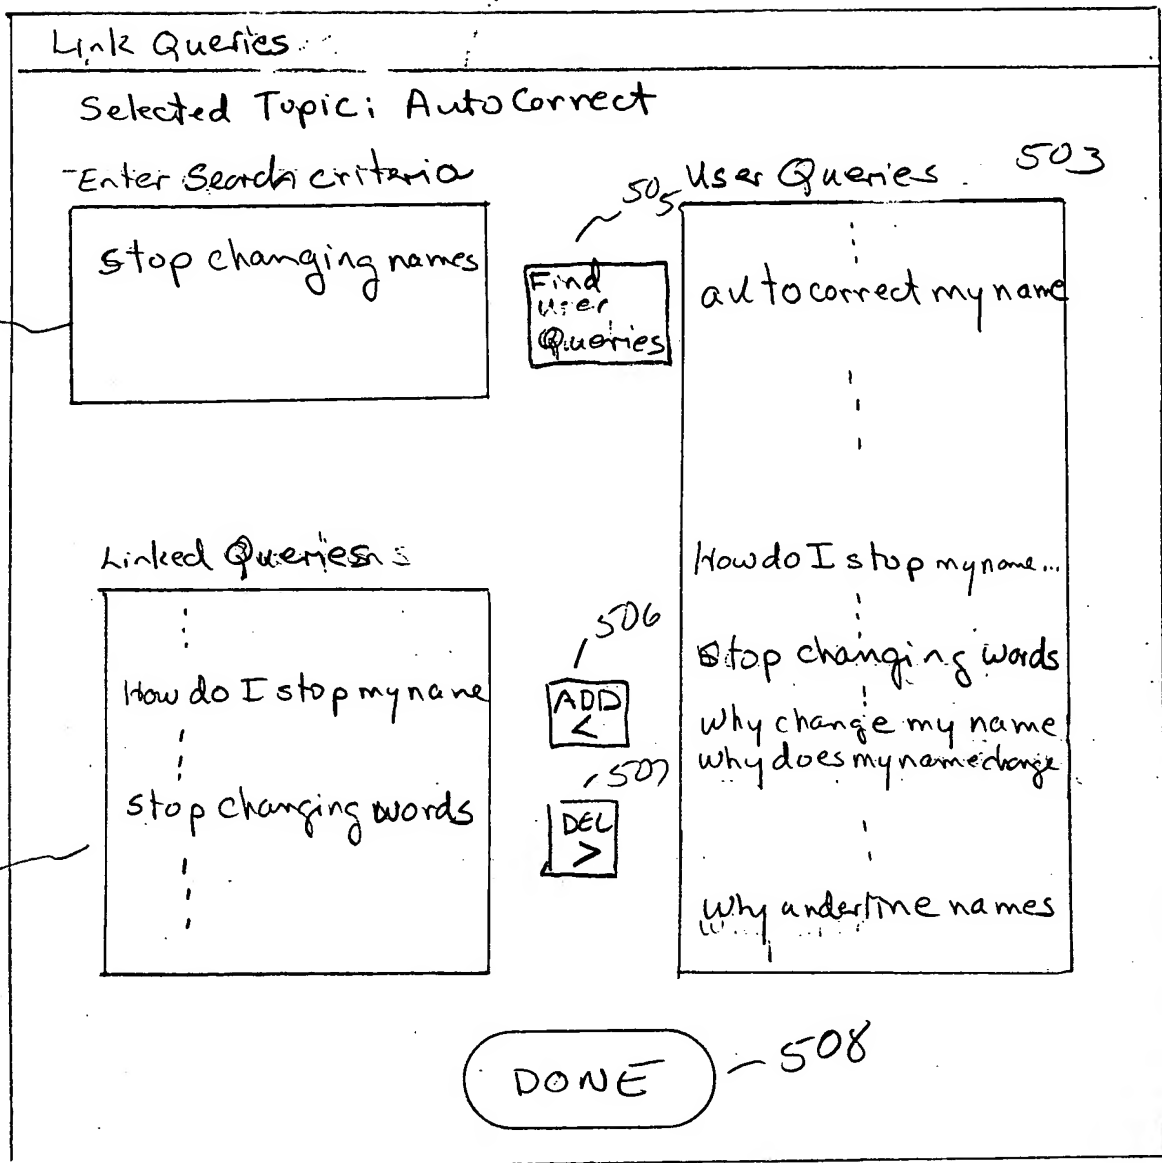 Link Queries
Selected Topic: AutoCorrect
Enter Search criteria
stop changing names
505
Find
User
Queries
User Queries
503
autocorrect my name
How do I stop my name...
stop changing words
why change my name
why does my name change
why underline names
Linked Queries
How do I stop my name
stop changing words
506
ADD
<
507
DEL
>
DONE
508